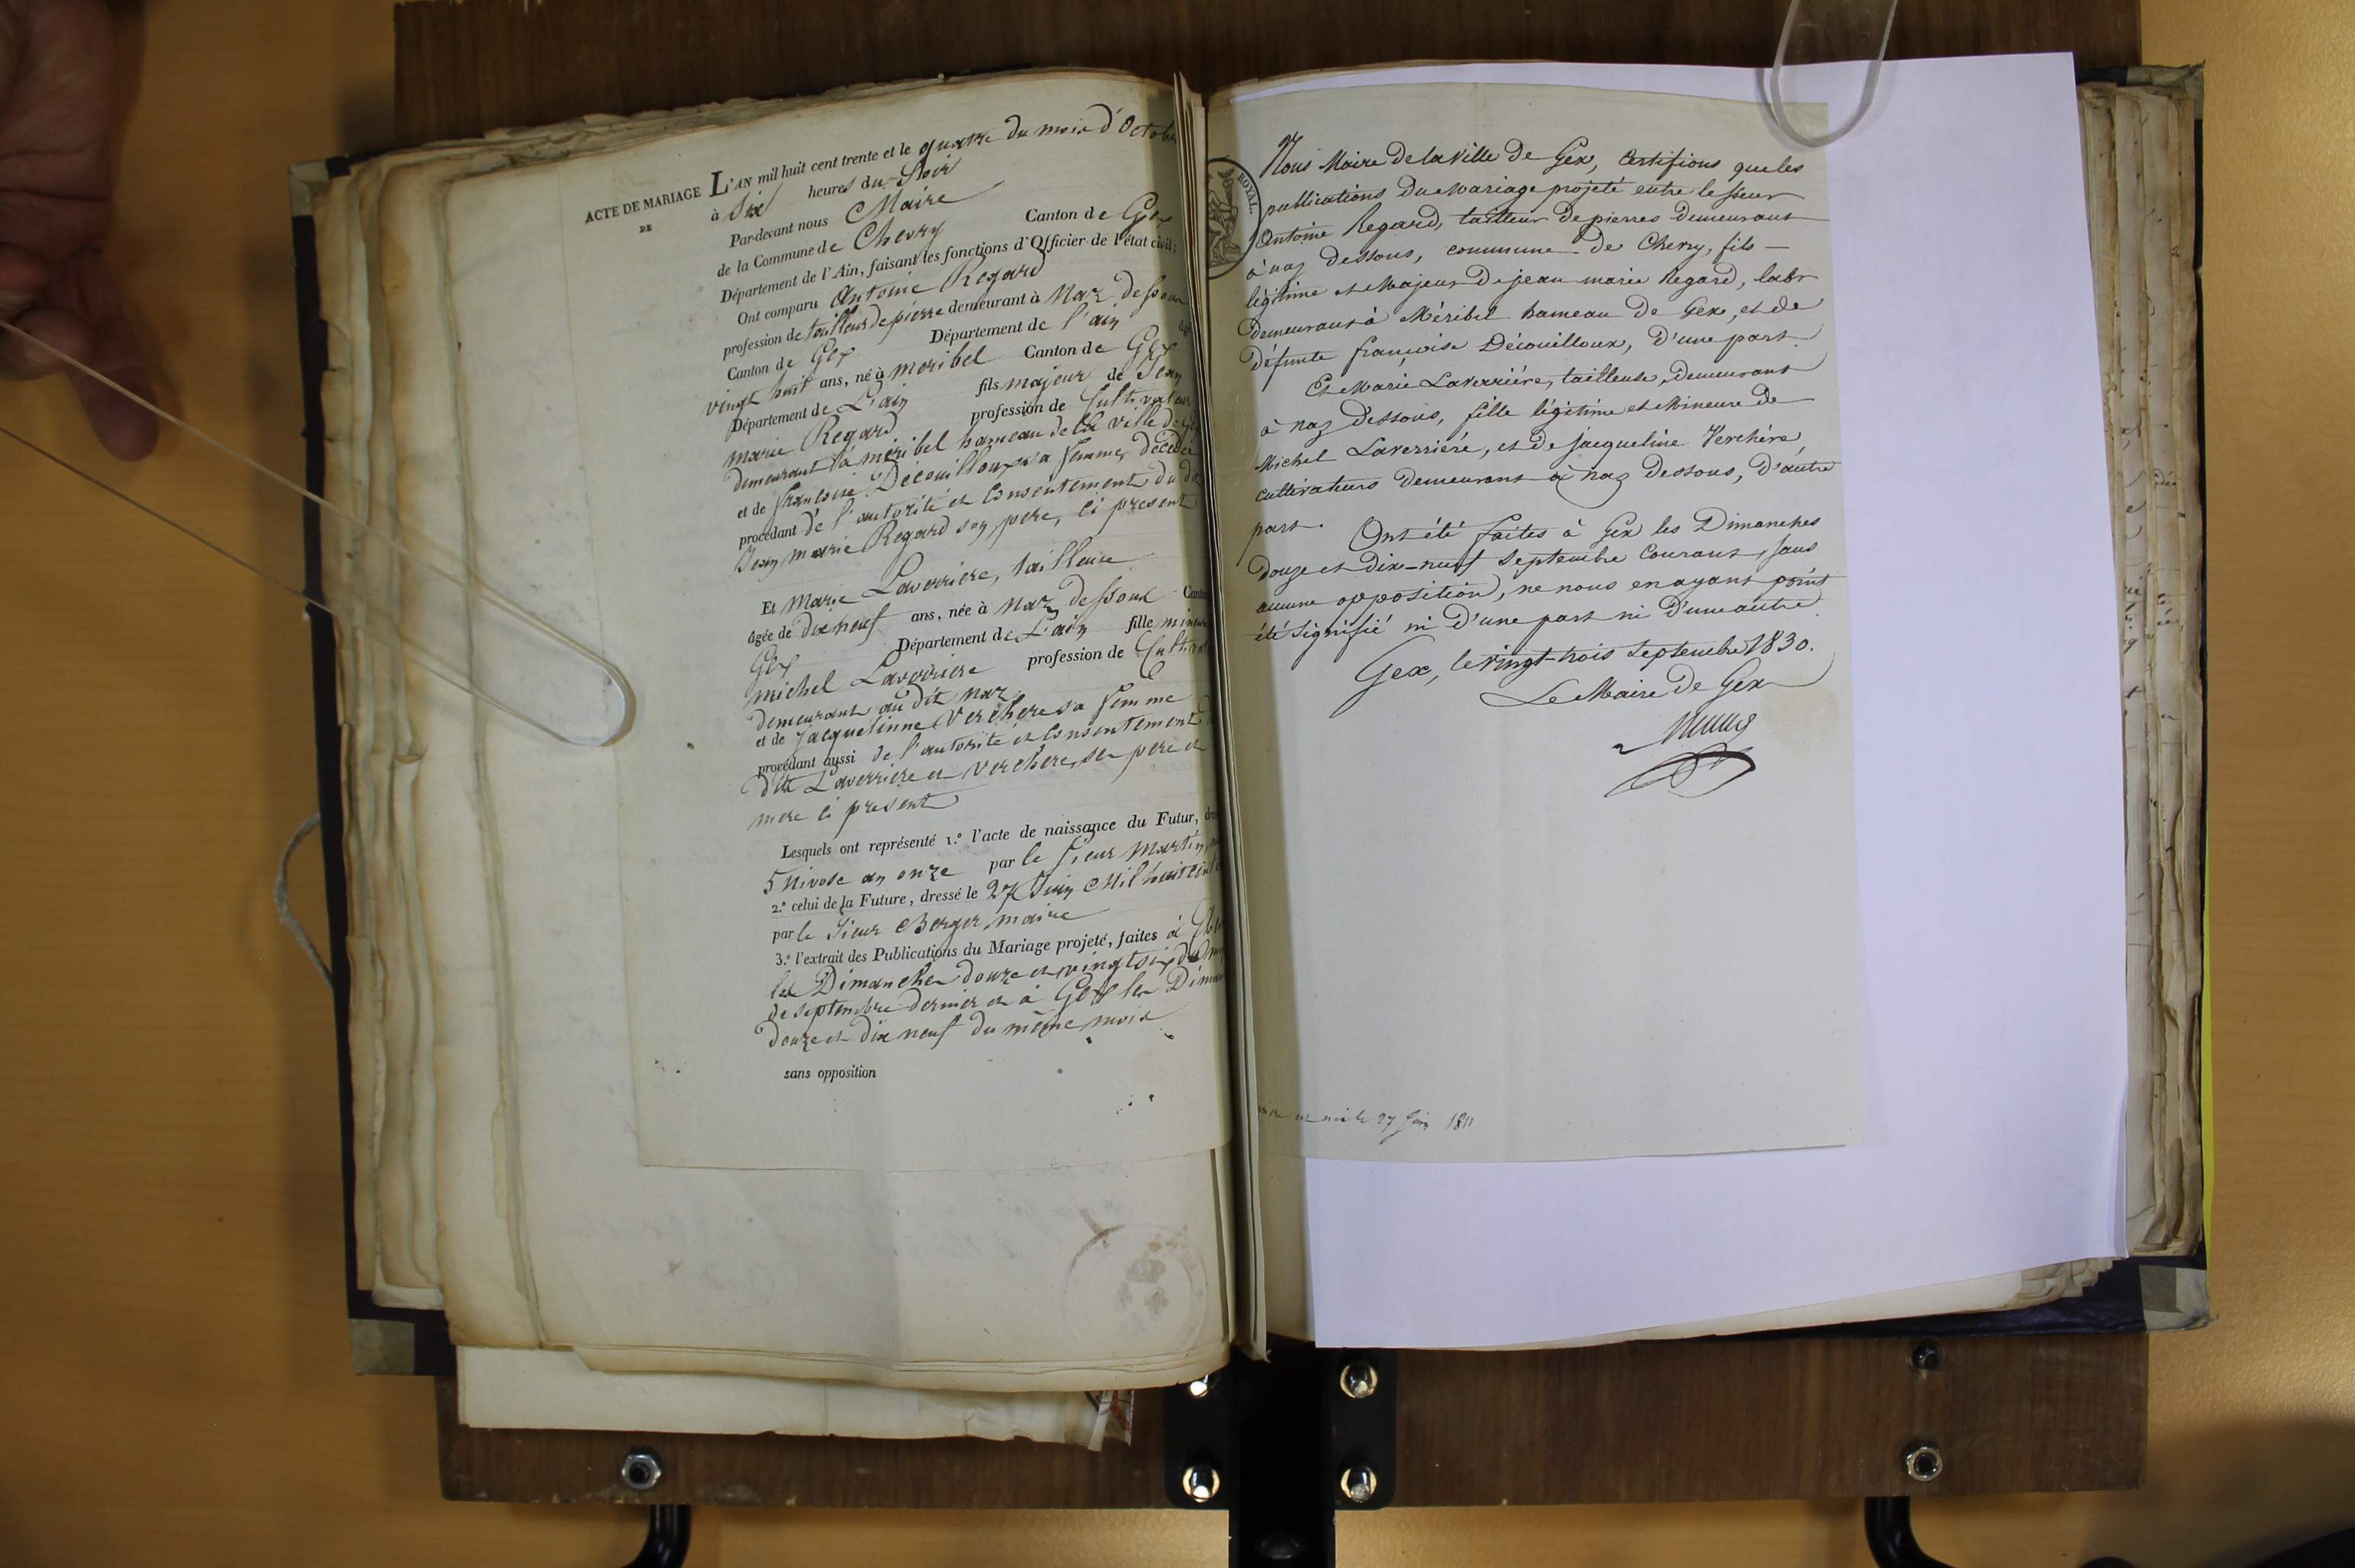 ACTE DE MARIAGE
DE
L'AN mil huit cent trente et le quatre du mois d'Octobre
à Six heures du Soir
Par-devant nous Maire
de la Commune de Chevry Canton de Gex
Département de l'Ain, faisant les fonctions d'Officier de l'état civil;
Ont comparu Antoine Regard
profession de tailleur de pierre demeurant à Naz dessous
Canton de Gex Département de l'ain
vingt huit ans, né à meribel Canton de Gex
Département de L'ain fils majeur de Jean
marie Regard profession de Cultivateur
demeurant à meribel hameau de la ville de
et de françoise Decouilloux sa femme, decedée
procédant de l'autorité et Consentement du dit
Jean marie Regard son pere, ci present
Et Marie Laverriere, tailleuse
âgée de dix neuf ans, née à Naz dessous
Gex Département de L'ain fille
michel Laverriere profession de
demeurant au dit naz
et de Jacquelinne Verchere sa femme
procédant aussi de l'autorité et Consentement
dits Laverriere et Verchere, ses pere et
mere ci present
Lesquels ont représenté 1.º l'acte de naissance du Futur,
5 Nivose an onze par le sieur Martin
2.º celui de la Future, dressé le 27 Juin Mil huit cent
par le Sieur Berger maire
3.º l'extrait des Publications du Mariage projeté, faites à
les Dimanches douze et vingt six du
de septembre dernier et à Gex les
Douze et dix neuf du même mois
sans opposition
ROYAL.
Nous Maire de la Ville de Gex, Certifions que les
publications du mariage projeté entre le sieur
Antoine Regard, tailleur de pierres demeurant
à naz dessous, commune de Chevry, fils
légitime et Majeur de jean marie Regard, labr
demeurant à Méribel hameau de Gex, et de
défunte françoise Découilloux, d'une part.
Et Marie Laverrière, tailleuse, demeurant
à naz dessous, fille légitime et Mineure de
Michel Laverrière, et de jacqueline Verchère,
cultivateurs demeurant à naz dessous, d'autre
part. Ont été faites à Gex les Dimanches
douze et Dix-neuf Septembre courant, sans
aucune opposition, ne nous en ayant point
été signifié ni d'une part ni d'une autre.
Gex, le vingt-trois Septembre 1830.
Le Maire de Gex
27 Juin 1811